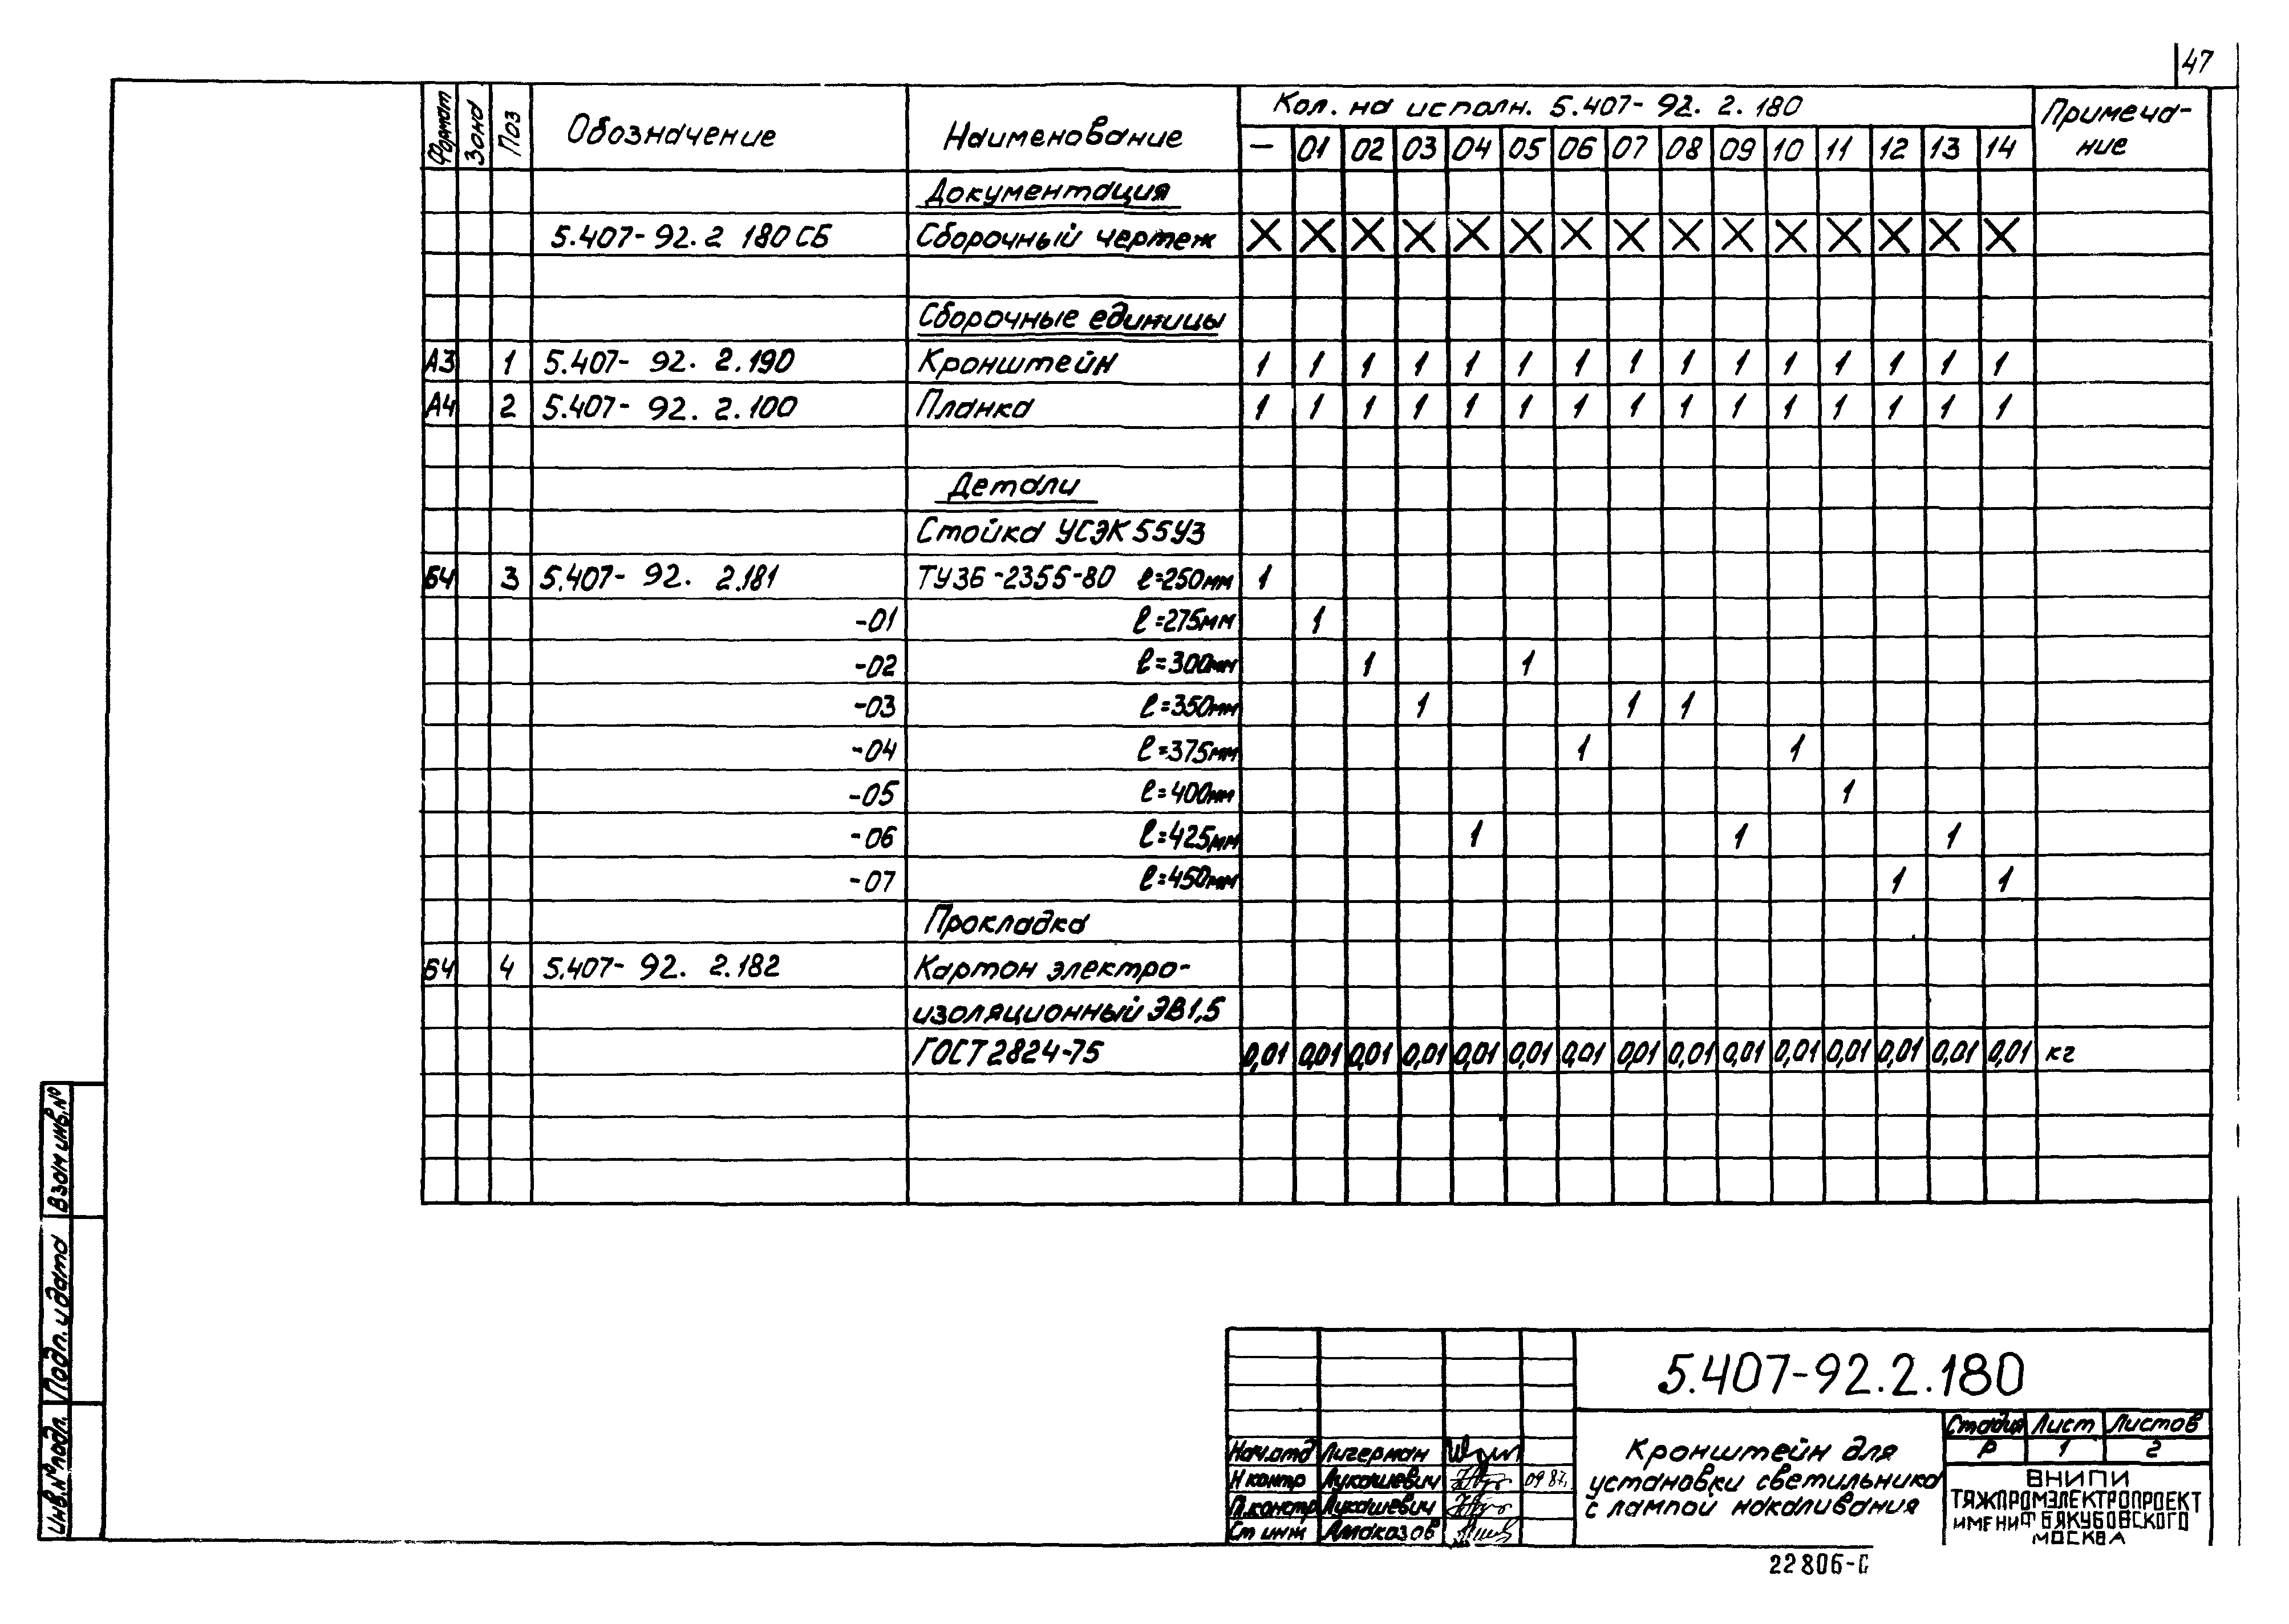 47
Формат Зона Поз Обозначение Наименование Кол. на исполн. 5.407-92.2.180 Примеча-
ние
— 01 02 03 04 05 06 07 08 09 10 11 12 13 14
Документация
5.407-92.2 180 СБ Сборочный чертеж X X X X X X X X X X X X X X X
Сборочные единицы
А3 1 5.407-92.2.190 Кронштейн 1 1 1 1 1 1 1 1 1 1 1 1 1 1 1
А4 2 5.407-92.2.100 Планка 1 1 1 1 1 1 1 1 1 1 1 1 1 1 1
Детали
Стойка УСЭК 55У3
Б4 3 5.407-92. 2.181 ТУ36-2355-80 ℓ=250мм 1
-01 ℓ=275мм 1
-02 ℓ=300мм 1 1
-03 ℓ=350мм 1 1 1
-04 ℓ=375мм 1 1
-05 ℓ=400мм 1
-06 ℓ=425мм 1 1 1
-07 ℓ=450мм 1 1
Прокладка
Б4 4 5.407-92. 2.182 Картон электро-
изоляционный ЭВ1,5
ГОСТ 2824-75 0,01 0,01 0,01 0,01 0,01 0,01 0,01 0,01 0,01 0,01 0,01 0,01 0,01 0,01 0,01 кг
Взам инв.№
Подп. и дата
Инв.№ подл.
5.407-92.2.180
Нач.отд Лигерман
Н контр Лукашевич 09 87
П.констр Лукашевич
Ст инж Алмаказов
Кронштейн для
установки светильника
с лампой накаливания
Стадия Лист Листов
Р 1 2
ВНИПИ
ТЯЖПРОМЭЛЕКТРОПРОЕКТ
ИМЕНИ Ф Б ЯКУБОВСКОГО
МОСКВА
22806-